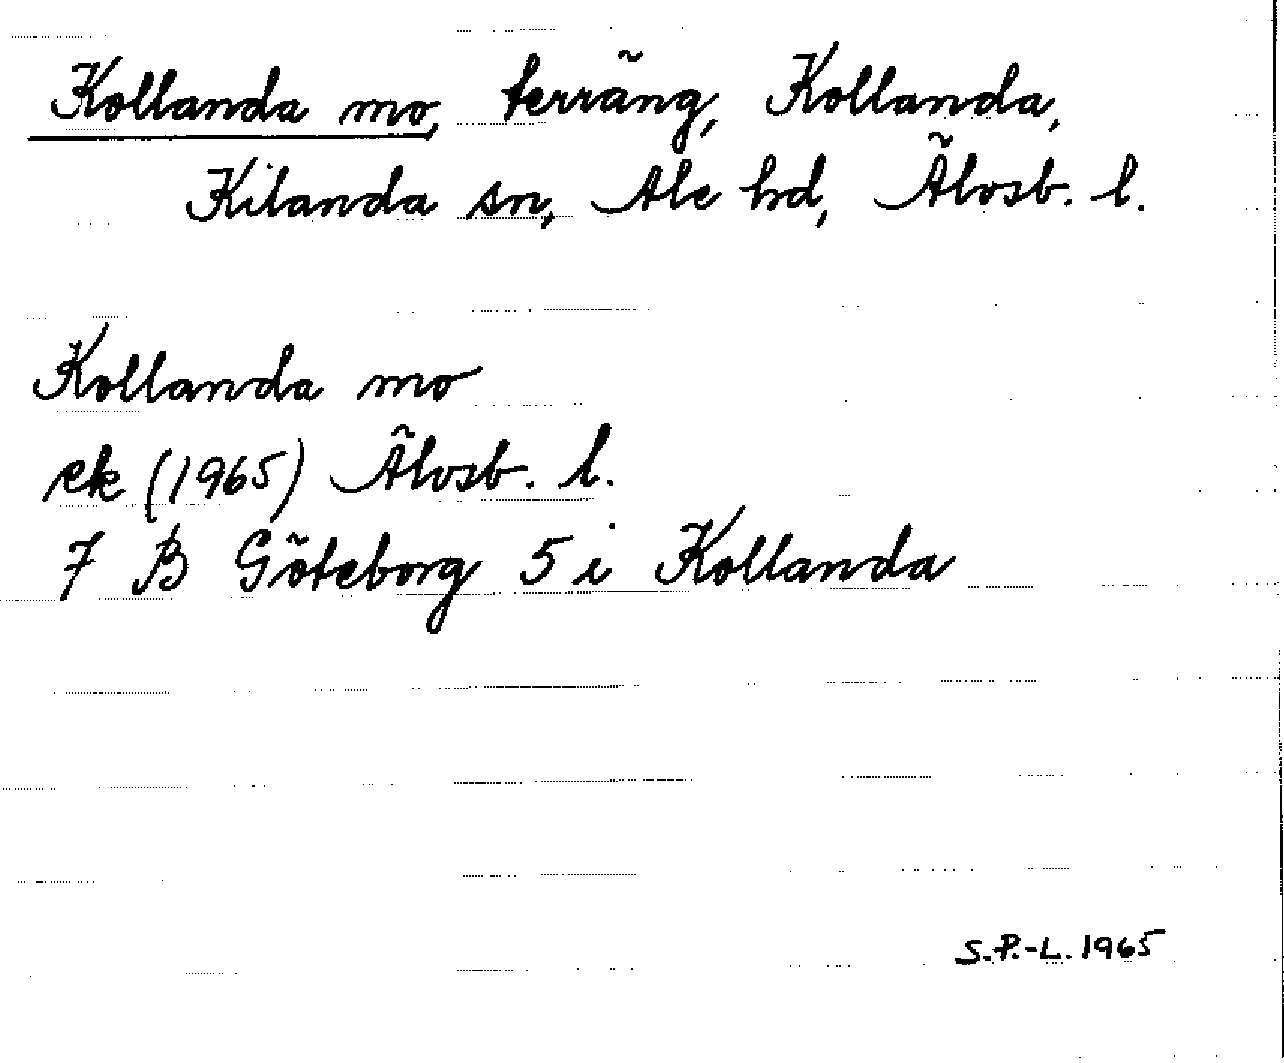 Kollanda mo, terräng, Kollanda,
Kilanda sn, Ale hd, Älvsb. l.
Kollanda mo
ek (1965) Älvsb. l.
7 B Göteborg 5 i Kollanda
S.P.-L. 1965